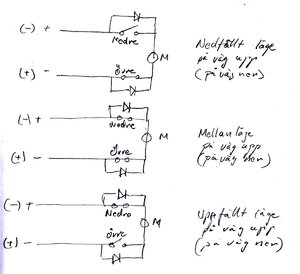 (-) +
Nedre
M
(+) -
Övre
Nedfällt läge
på väg upp
(på väg ner)
(-) +
Nedre
M
(+) -
Övre
Mellanläge
på väg upp
(på väg ner)
(-) +
Nedre
M
(+) -
Övre
Uppfällt läge
på väg upp
(på väg ner)